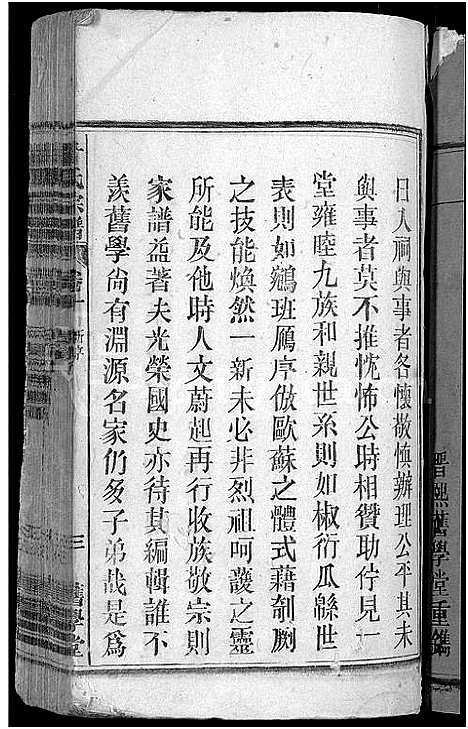 日入祠與事者各懷敬慎辦理公平其未
與事者莫不推忱怖公時相贊助佇見一
堂雍睦九族和親世系則如椒衍瓜緜世
表則如鵷班鴈序倣歐蘇之體式藉剞劂
之技能煥然一新未必非烈祖呵護之靈
所能及他時人文蔚起再行收族敬宗則
家譜益著夫光榮國史亦待其編輯誰不
羨舊學尙有淵源名家仍多子弟哉是爲
氏宗譜
卷一
三
舊學堂
熙舊學堂重鐫